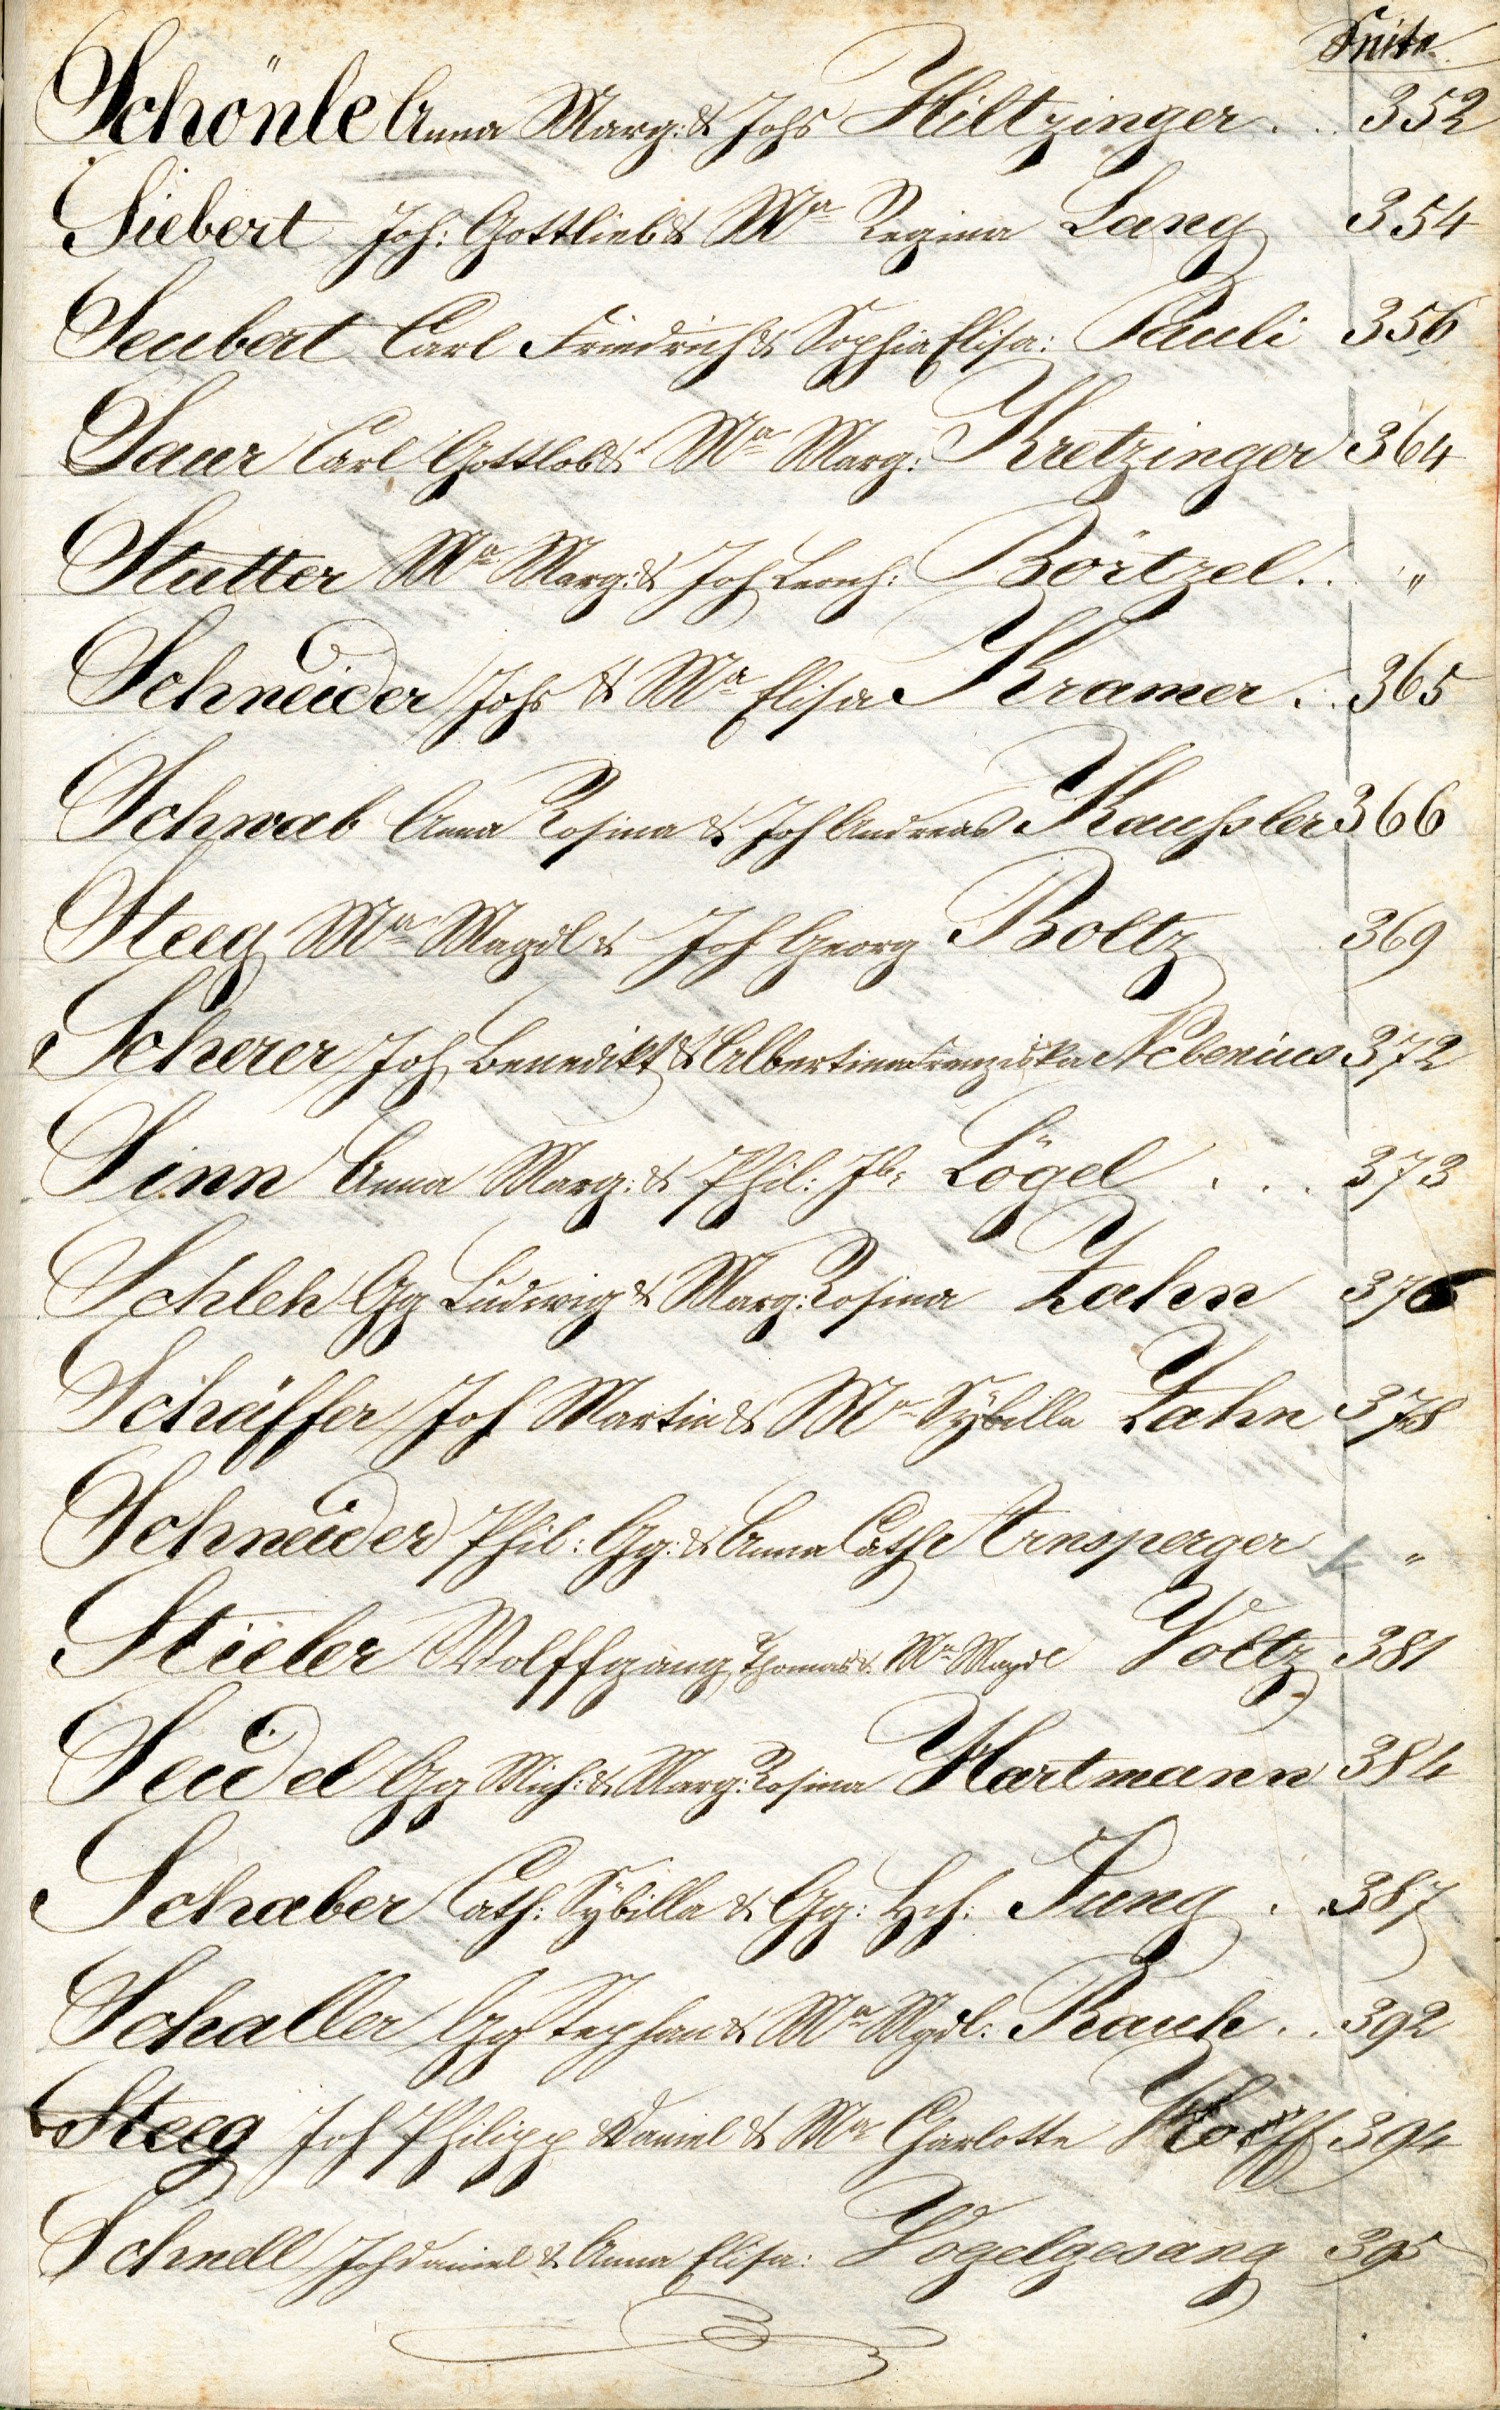 Seite
Schönle Anna Marg: & Johs Hiltzinger . . 352
Siebert Joh: Gottlieb & Ma Regina Lang 354
Seubert Carl Friedrich & Sophia Elisa: Pauli 356
Saur Carl Gottlob & Ma Marg: Kretzinger 364
Stutter Ma Marg: & Joh Leonh: Börtzel . . "
Schneider Johs & Ma Elisa Kramer . . 365
Schwab Anna Rosina & Joh Andreas Kaußler 366
Steeg Ma Magdl & Joh Georg Boltz 369
Scherer Joh Benedikt & Albertina Franziska Nebenius 372
Sinn Anna Marg: & Phil: Jb: Lögel . . . 373
Schleh Gg Ludwig & Marg: Rosina Zahn 376
Schäffer Joh Martin & Ma Sybilla Zahn 378
Schneider Phil: Gg: & Anna Cath Arnsperger "
Stieler Wolffgang Thomas & Ma Magdl Voltz 381
Seidel Gg Mich: & Marg: Rosina Hartmann 384
Schaber Cath: Sybilla & Gg: Hch: Jung . . 387
Schaller Gg Stephan & Ma Mgdl: Rauh . . 392
Steeg Joh Philipp Daniel & Ma Charlotte 394
Schnell Joh Daniel & Anna Elisa: Vogelgesang 395